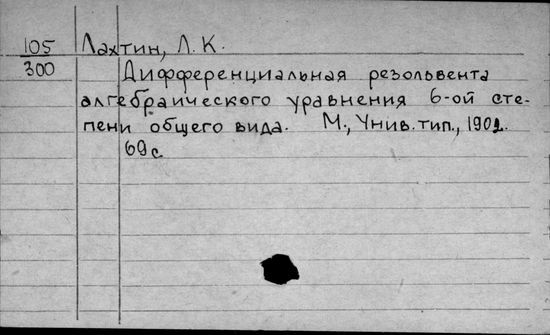 105 Лахтин, Л. К.
300 Дифференциальная резольвента
алгебраического уравнения 6-ой сте-
пени общего вида. М., Унив. тип., 1902.
69 с